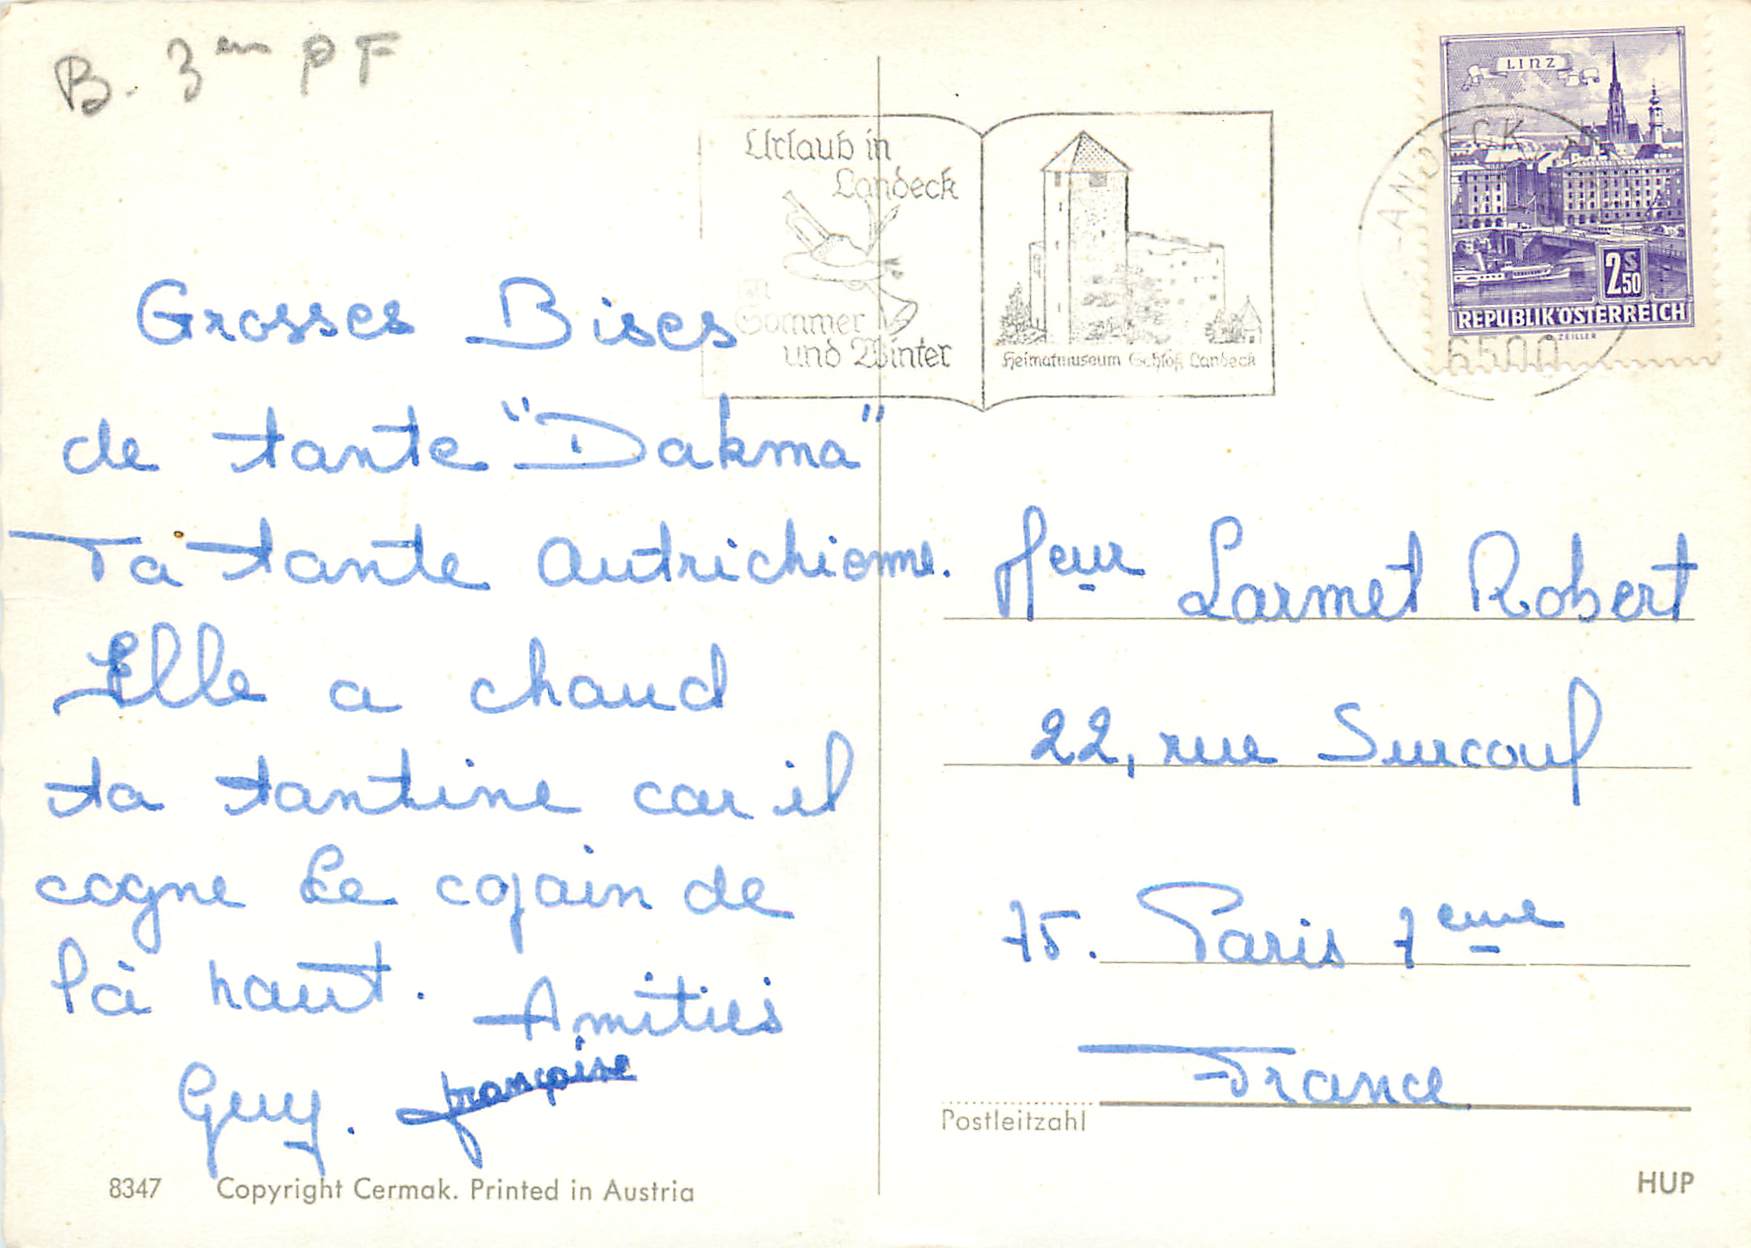 B. 3em PF
Urlaub in
Landeck
im
Sommer
und Winter
Heimatmuseum Schloß Landeck
LANDECK
6500
LINZ
2S50
REPUBLIK ÖSTERREICH
ZEILLER
Grosses Bises
de tante "Dakma"
Ta tante Autrichienne.
Elle a chaud
ta tantine car il
cogne Le copain de
là haut. Amitiés
Guy. françoise
Meur Larmet Robert
22, rue Surcouf
75. Paris 7eme
France
Postleitzahl
8347 Copyright Cermak. Printed in Austria
HUP